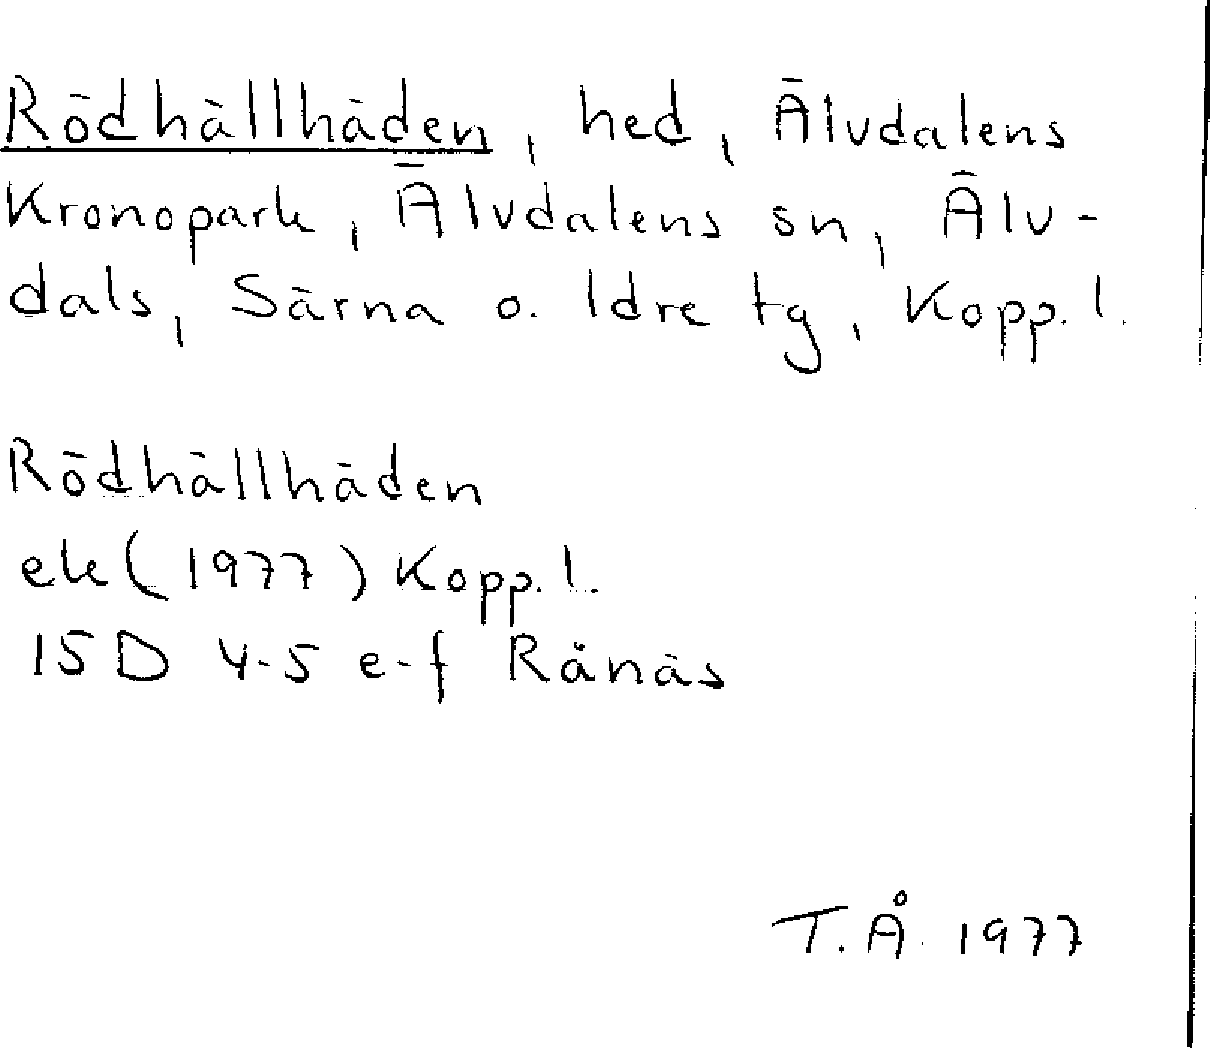 Rödhällhäden, hed, Älvdalens
Kronopark, Älvdalens sn, Älv-
dals, Särna o. Idre tg, Kopp. l.
Rödhällhäden
ek (1977) Kopp. l.
15D 4-5 e-f Rånäs
T.Å. 1977